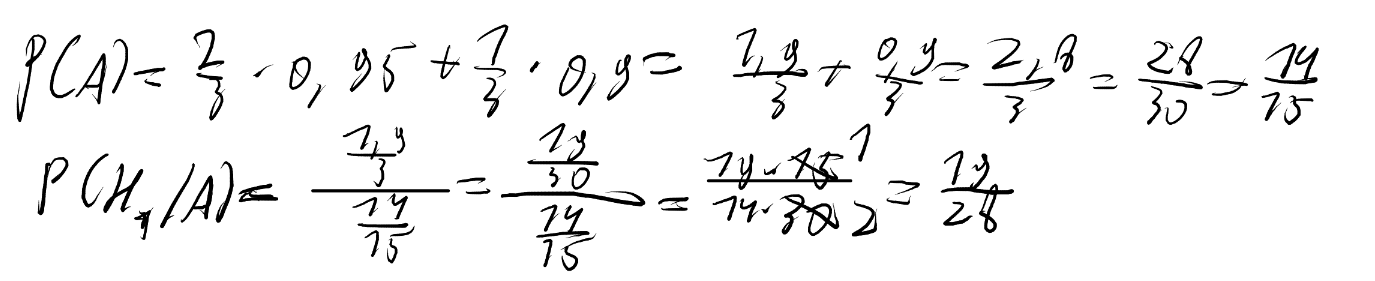 P(A) = 2/3 · 0,95 + 1/3 · 0,9 = 1,9/3 + 0,9/3 = 2,8/3 = 28/30 = 14/15
P(H₁/A) = (1,9/3)/(14/15) = (19/30)/(14/15) = (19·15 1)/(14·30 2) = 19/28